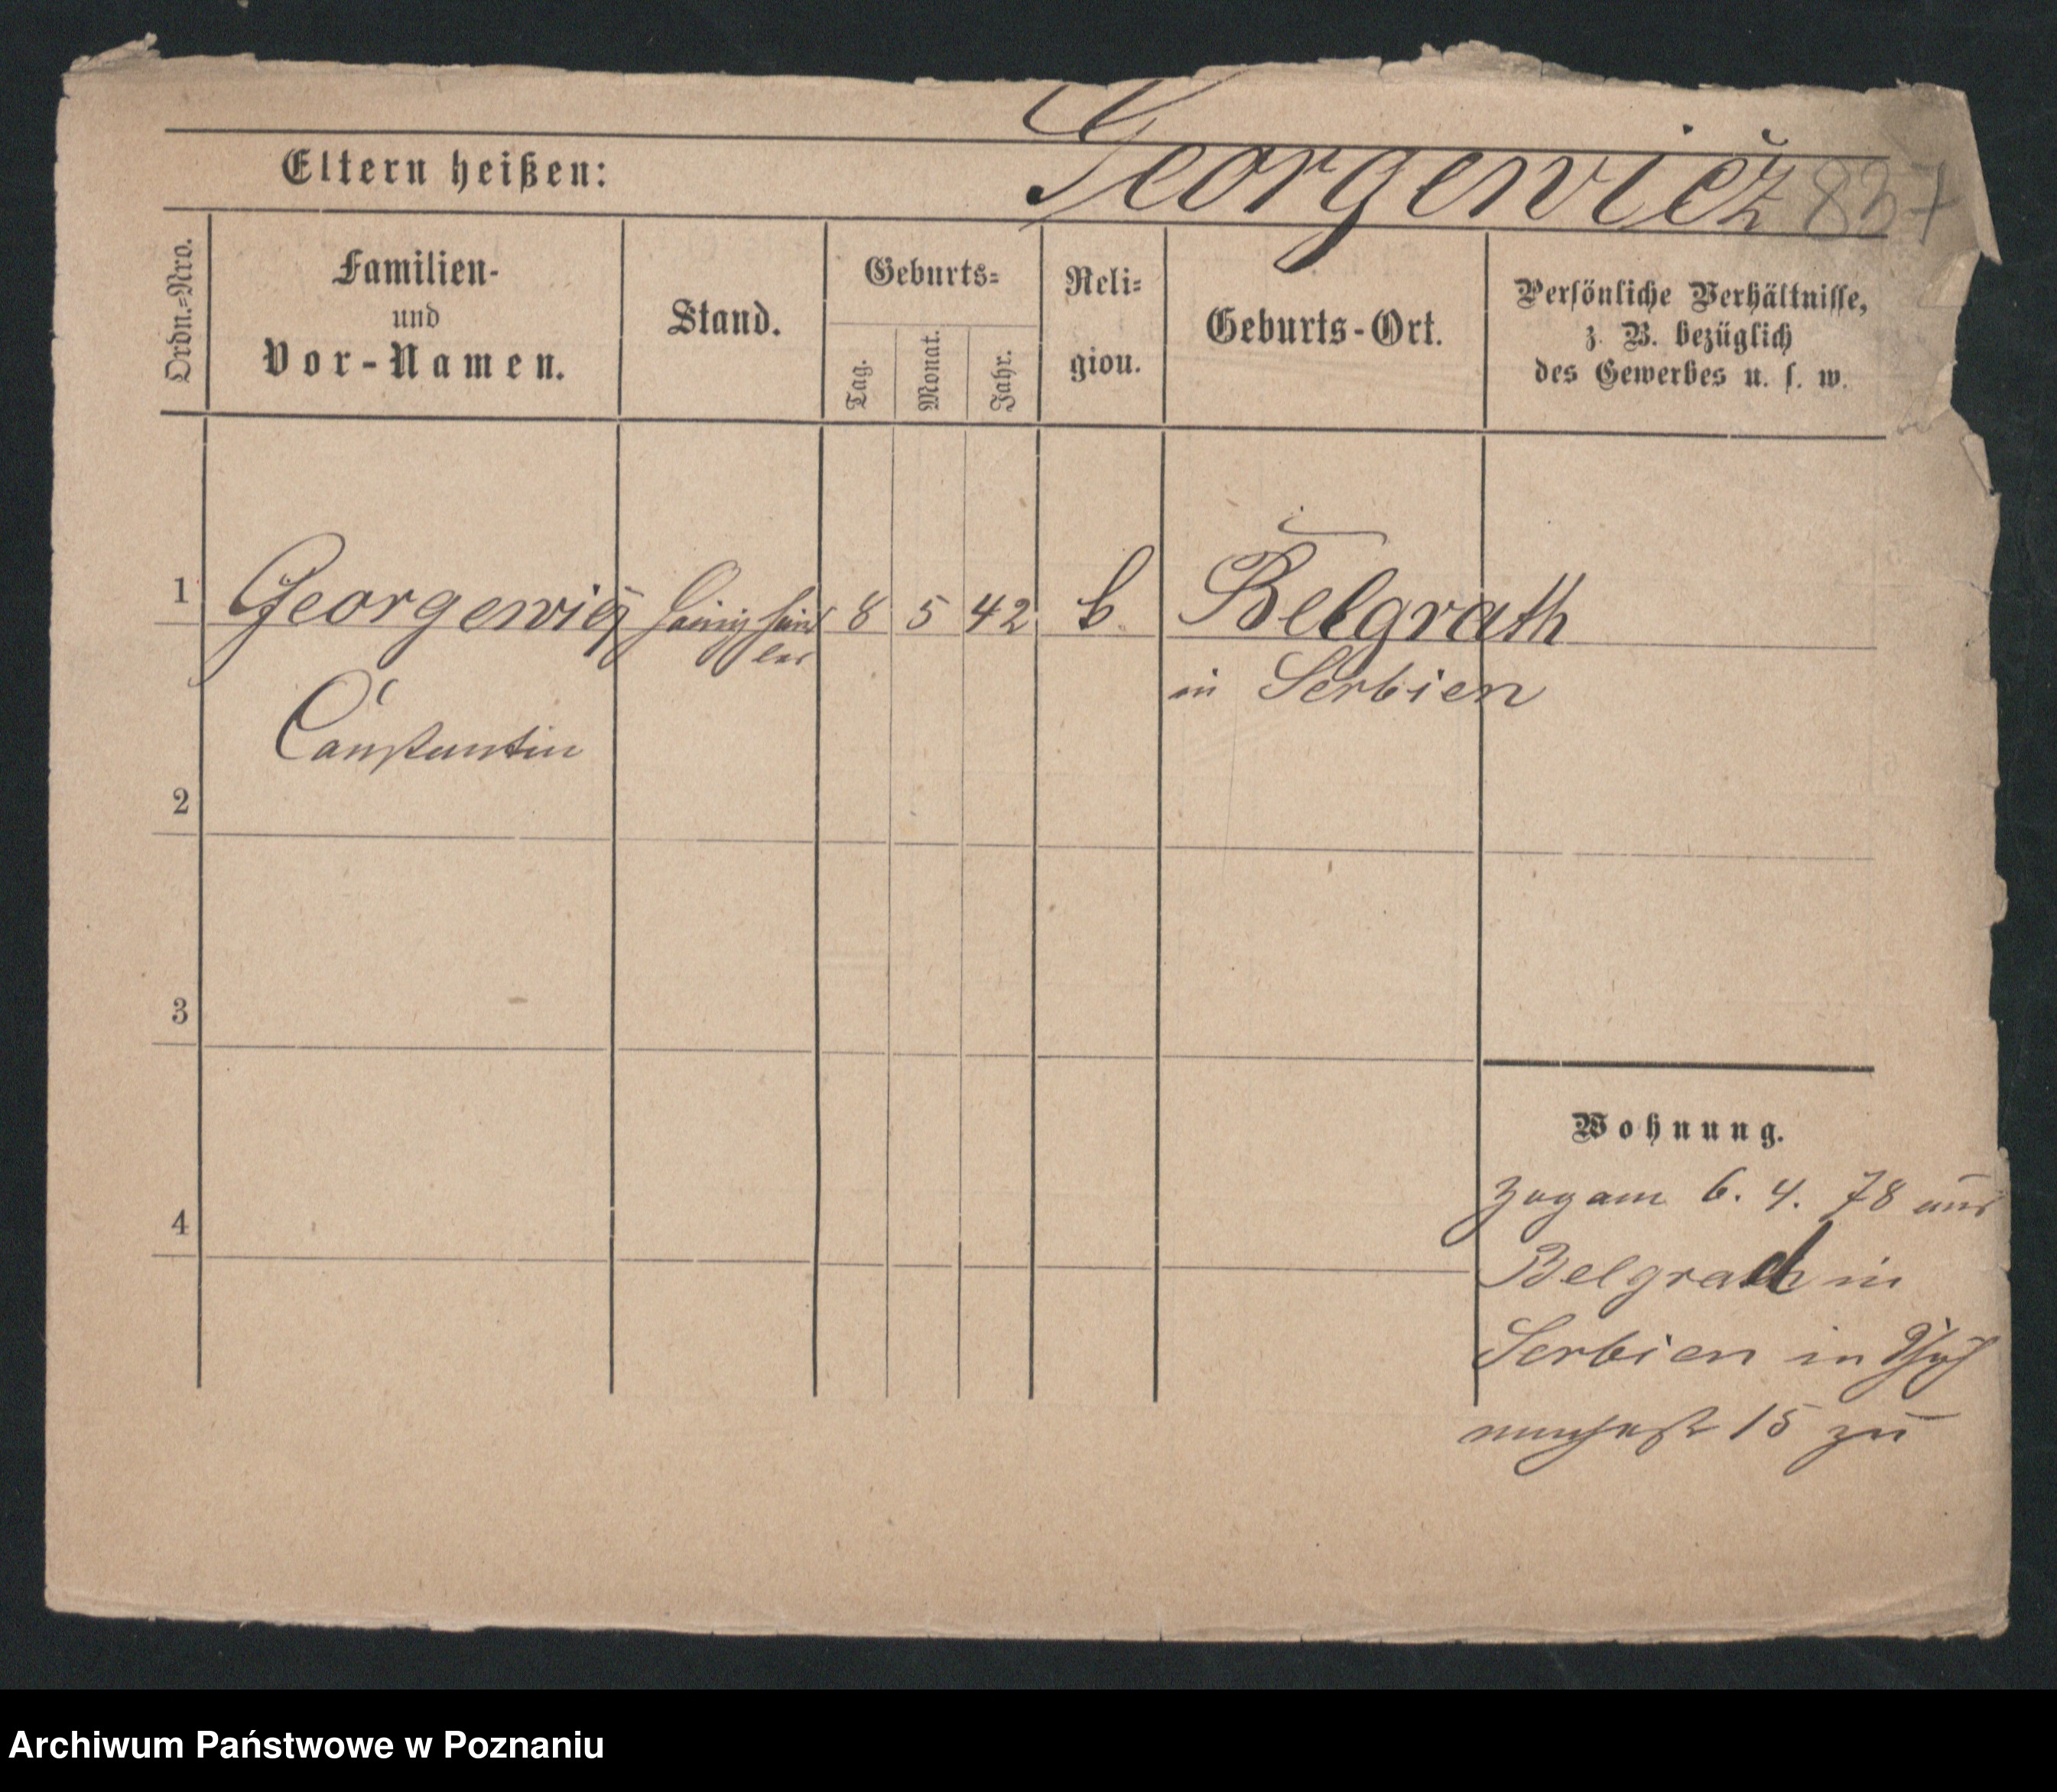 Georgewicz 837
Eltern heißen:
Ordn.=Nro.
Familien-
und
Vor-Namen.
Stand.
Geburts=
Tag.
Monat.
Jahr.
Reli=
gion.
Geburts-Ort.
Persönliche Verhältnisse,
z. B. bezüglich
des Gewerbes u. s. w.
1 Georgewicz 8 5 42 Belgrath
in Serbien
Constantin
2
3
4
Wohnung.
zog am 6. 4. 78 aus
Belgrad in
Serbien in
15 zu
Archiwum Państwowe w Poznaniu